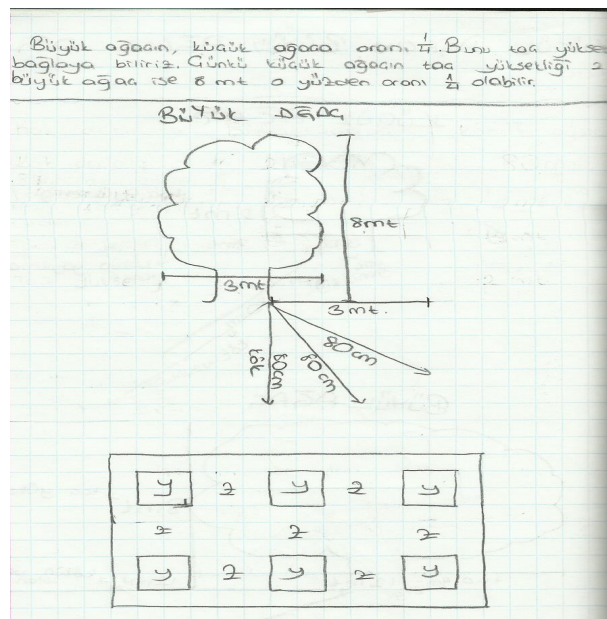 Büyük ağacın, küçük ağaca oranı 1/4. Bunu taç yükse
bağlaya biliriz. Çünkü küçük ağacın taç yüksekliği 2
büyük ağaç ise 8 mt o yüzden oranı 1/4 olabilir.
BÜYÜK AĞAÇ
8mt
3mt
3mt.
80cm
80cm
80cm
kök
y z y z y
z z z
y z y z y